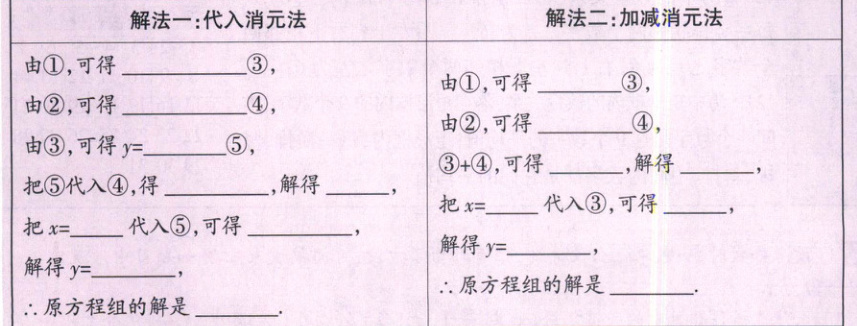 解法一:代入消元法
由①,可得 ____________③,
由②,可得 ____________④,
由③,可得 y=________⑤,
把⑤代入④,得 __________,解得 ______,
把 x=_____ 代入⑤,可得 __________,
解得 y=________,
∴原方程组的解是 ________.
解法二:加减消元法
由①,可得 ________③,
由②,可得 _________④,
③+④,可得 _______,解得 _______,
把 x=_____ 代入③,可得 ______,
解得 y=________,
∴原方程组的解是 ________.